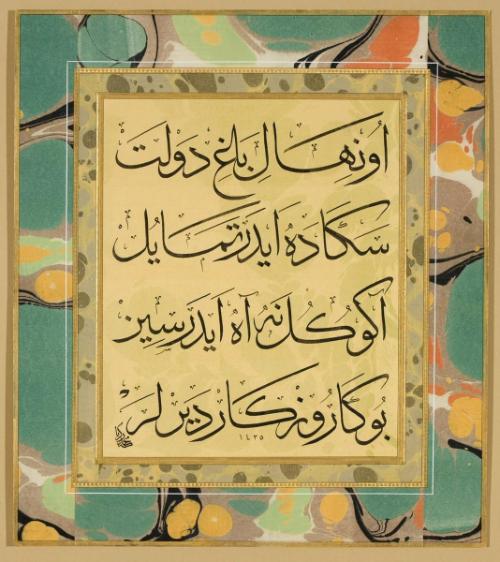 اونهال باغ دولت
سكاده ايدر تمايل
آكوكل نه آه ايدرسين
بوكا روزكار ديرلر
١٤٣٥